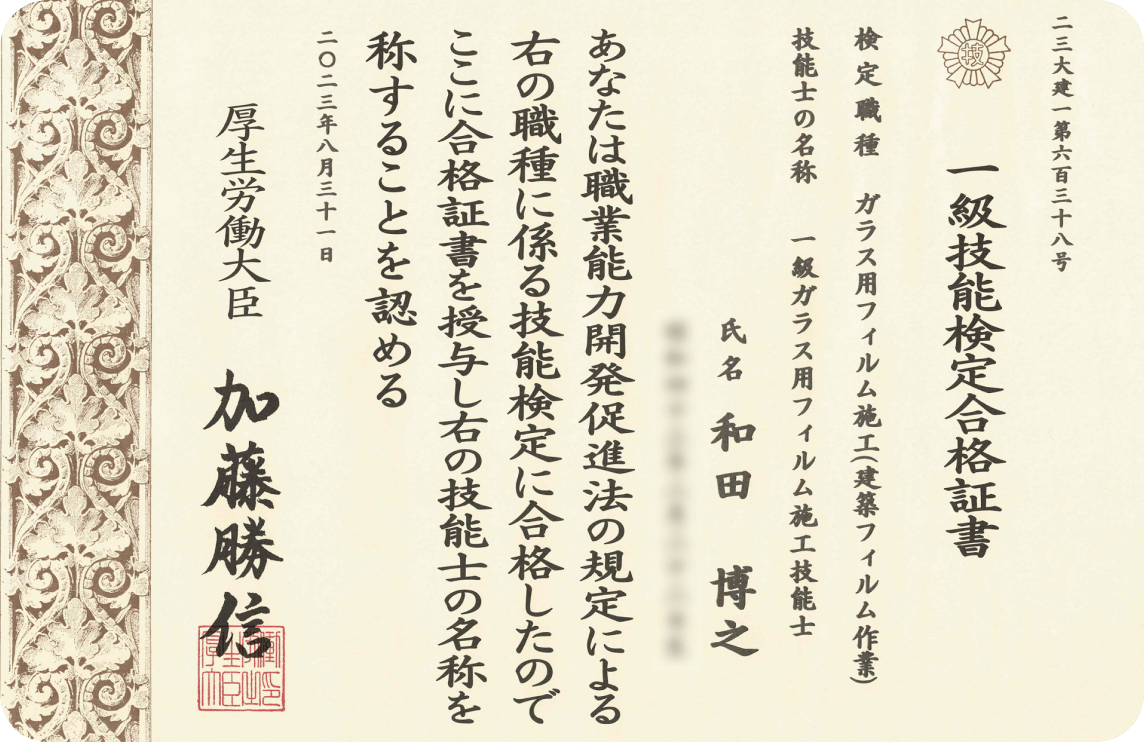 二三大建一第六百三十八号
技
一級技能検定合格証書
検定職種　ガラス用フィルム施工(建築フィルム作業)
技能士の名称　一級ガラス用フィルム施工技能士
氏名　和田　博之
あなたは職業能力開発促進法の規定による
右の職種に係る技能検定に合格したので
ここに合格証書を授与し右の技能士の名称を
称することを認める
二〇二三年八月三十一日
厚生労働大臣　加藤勝信